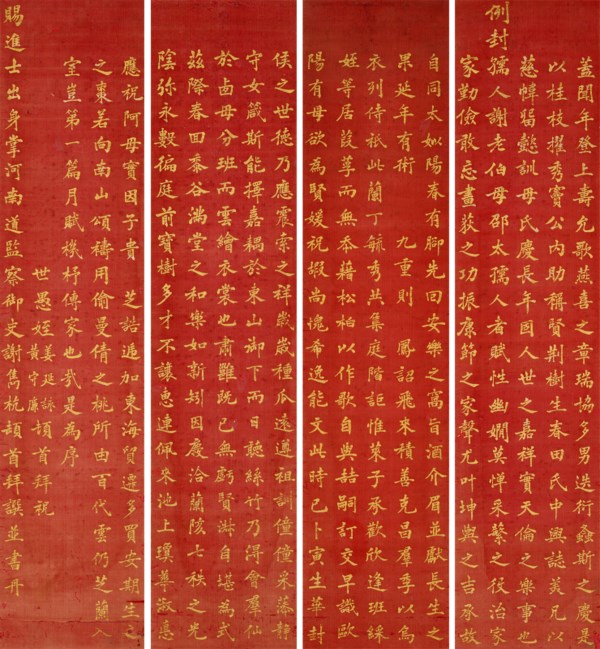 蓋聞年登上壽允歌燕喜之章瑞協多男迭衍螽斯之慶是
以桂枝擢秀竇公內助稱賢荆樹生春田氏中興誌美凡以
慈幃懿訓母氏慶長年國人世之嘉祥實天倫之樂事也
例封孺人謝老伯母邵太孺人者賦性幽嫻莫憚采蘩之役治家
家勤儉敢忘畫荻之功振康節之家聲尤叶坤輿之吉承故
自同太姒陽春有腳先回安樂之窩旨酒介眉並獻長生之
果延年有術 九重則 鳳詔飛來積善克昌羣季以烏
衣列侍祇此蘭丁毓秀共集庭階詎惟萊子承歡欣逢班綵
姪等居葭莩而無忝藉松柏以作歌自與喆嗣訂交早識歐
陽有母欲為賢媛祝嘏尚愧希逸能文此時已卜寅生華封
侯之世德乃應震索之祥歲歲種瓜遠遵祖訓僮僮采蘩靜
守女箴斯能擇嘉耦於東山御下而日聽絲竹乃得會羣仙
於鹵母分班而雲繪衣裳也肅雝既已無虧賢淋自堪為式
茲際春回黍谷滿堂之和樂如新矧因慶洽蘭陔七秩之光
陰弥永數徧庭前寶樹多才不讓惠連佩來池上瓊尊淑德
應祝阿母實因子貴 芝誥遞加東海賢遷多買安期生之
之棗若向南山頌禱用偷曼倩之桃所由百代雲仍芝蘭入
室豈第一篇月賦機杼傳家也哉是為序
世愚姪姜延詠黃守廉頓首拜祝
賜進士出身掌河南道監察御史謝雋杭頓首拜譔並書丹